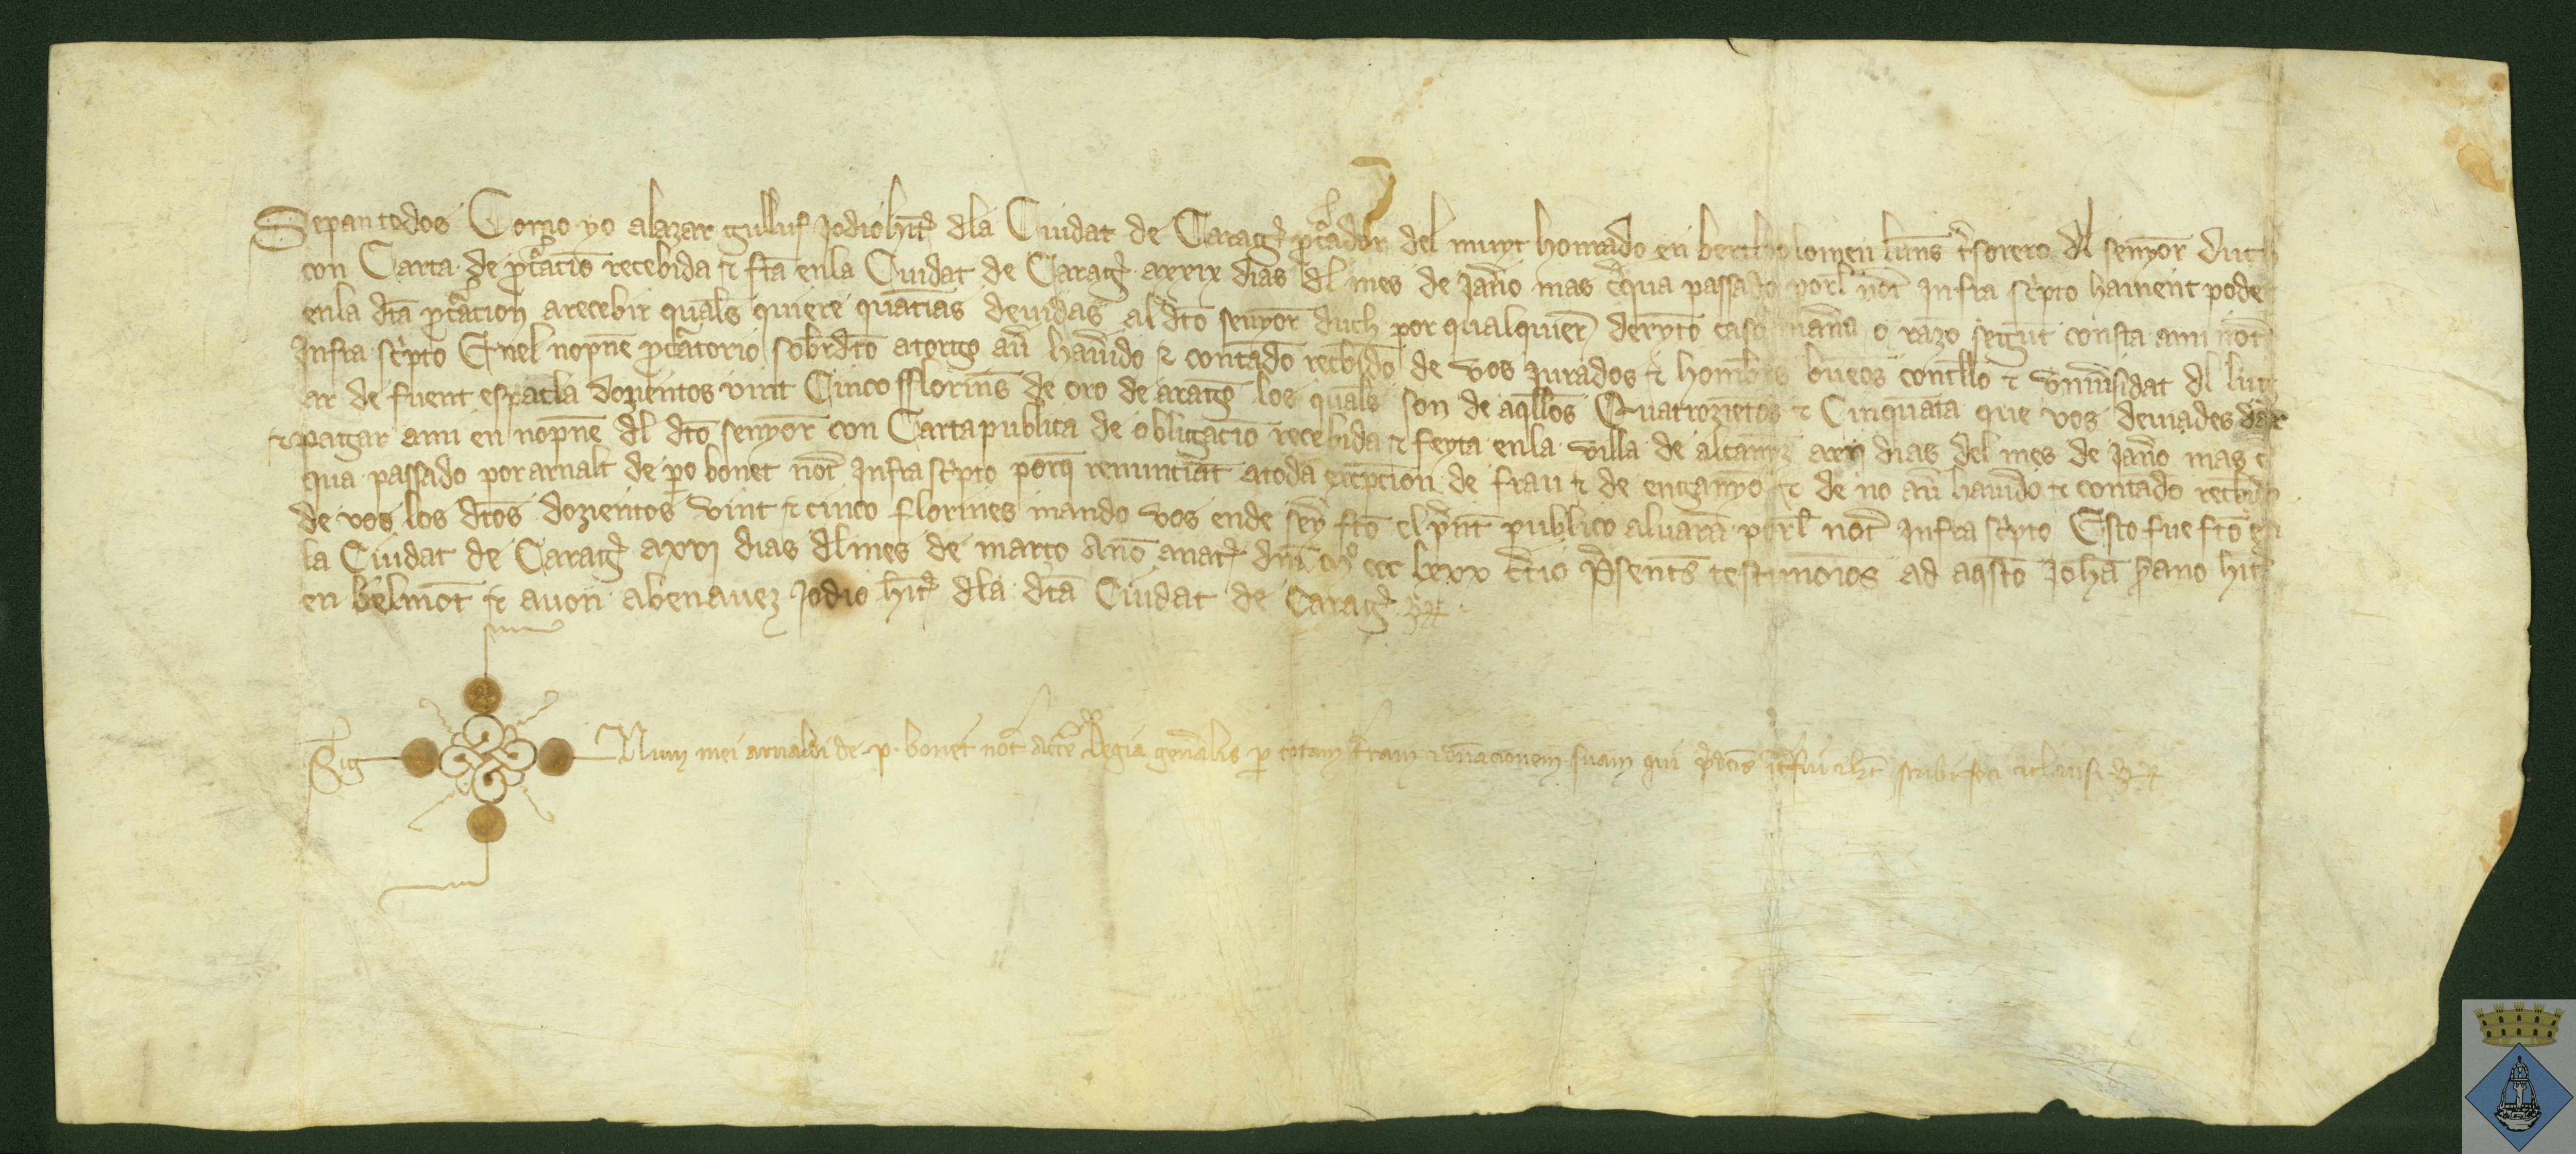 Sepan todos Como yo alazar gulluf Jodio hit̃ dla Ciudat de Carag̃ p̃cador del muyt honrado en bertholomeu luns t̃sorero dl senyor duch
con Carta de p̃cacion recebida ⁊ fta enla Ciudat de Carag̃ xxix dias dl mes de Jan̄o mas c̃qua passado porl not̃ Infra sc̃pto havient poder
enla dta p̃cacion a recebir quals quiere quatias devidas al dto senyor duch por qualquier dreyto caso man̄a o razo segunt consta ami not̃
Infra sc̃pto Enel nopne p̃catorio sobr̃dto atorgo av̄ hav̄ido ⁊ contado recb̃ido de vos Jurados ⁊ hombres bueos concello ⁊ univ̄sidat dl lug
ar de fuent espatla dozientos vint Cinco fflorins de oro de arag̃ los quals son de aq̃llos Quatrozietos ⁊ Cinquata que vos deviades dar
⁊ pagar ami en nopne dl dto senyor con Carta publica de obligacio recebida ⁊ feyta enla villa de alcanyz xxij dias del mes de Jan̄o mas c̃
qua passado por arnalt de po bonet not̃ Infra sc̃pto porq̃ renunciant atoda excepcion de frau ⁊ de enganyo ⁊ de no av̄ hav̄ido ⁊ contado recb̃ido
de vos los dtos dozientos vint ⁊ cinco florines mando vos ende seȳ fto el p̃nt publico alvara porl not̃ Infra sc̃pto Esto fue fto en
la Ciudat de Carag̃ xxvj dias dl mes de março Ano anat̃ dni mº ccc lxxx t̃cio P̃sents testimonios ad aq̃sto Johā hit̃
en belmot ⁊ avon abenavez Jodio hit̃ dla dta Ciudat de Carag̃
Sig Num mei arnaldi de p. bonet not̃ Regia gen̄alis p totam t̃ram ⁊ d̄nacionem suam qui p̃dcis int̃fui ⁊ hec scribi feci ⁊ clausi